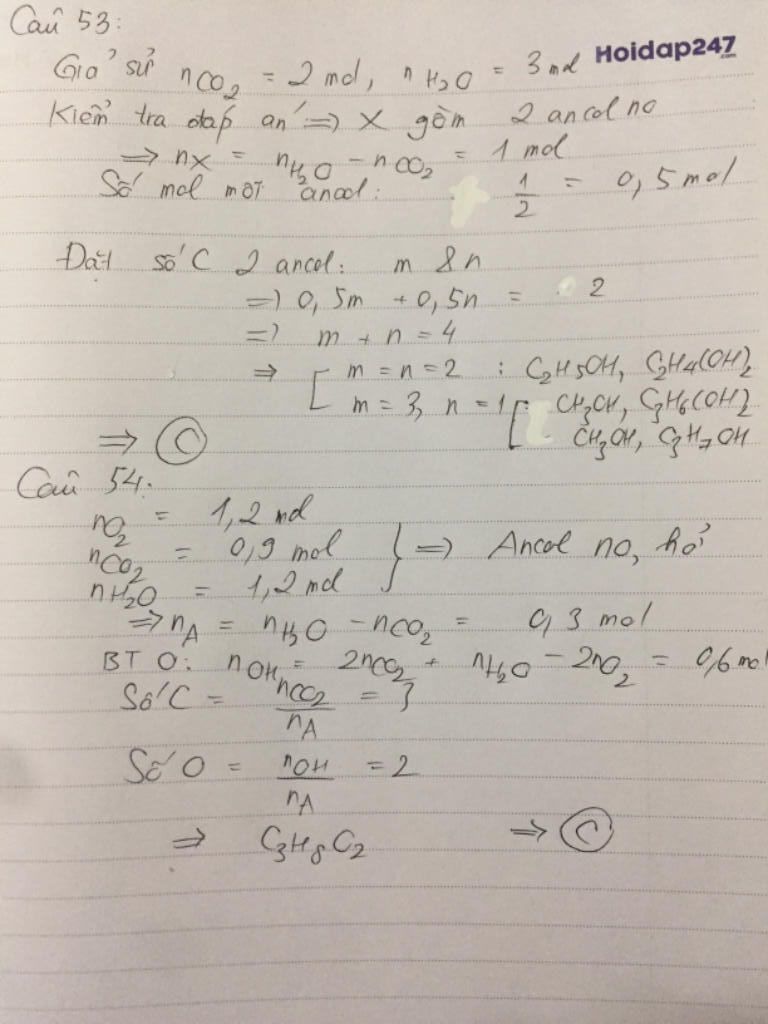 Câu 53:
Hoidap247
.com
Giả sử nCO2 = 2 mol, nH2O = 3 mol
Kiểm tra đáp án => X gồm 2 ancol no
=> nX = nH2O - nCO2 = 1 mol
Số mol mỗi ancol: 1/2 = 0,5 mol
Đặt số C 2 ancol: m & n
=> 0,5m + 0,5n = 2
=> m + n = 4
=> [ m = n = 2 : C2H5OH, C2H4(OH)2
m = 3, n = 1 [ CH3OH, C3H6(OH)2
CH3OH, C3H7OH
=> C
Câu 54:
nO2 = 1,2 mol
nCO2 = 0,9 mol } => Ancol no, hở
nH2O = 1,2 mol
=> nA = nH2O - nCO2 = 0,3 mol
BT O: nOH = 2nCO2 + nH2O - 2nO2 = 0,6 mol
Số C = nCO2/nA = 3
Số O = nOH/nA = 2
=> C3H8O2 => C